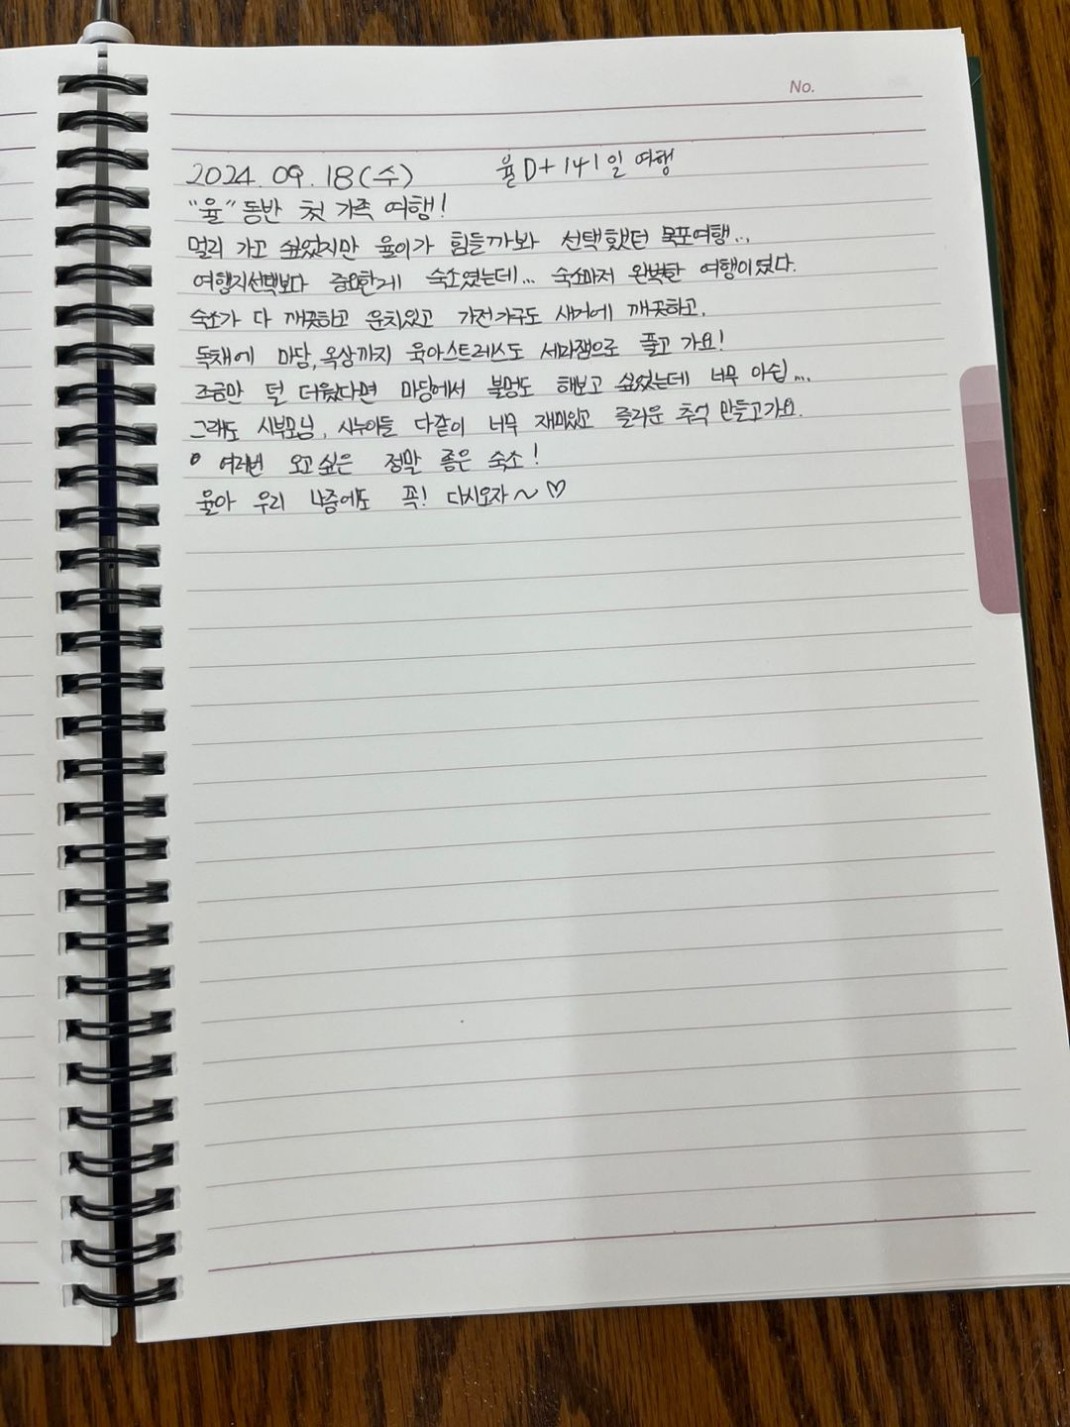 No.
2024. 09. 18(수) 율 D+141일 여행
"율" 동반 첫 가족 여행!
멀리 가고 싶었지만 율이가 힘들까봐 선택했던 목포여행..,
여행지선택보다 중요한게 숙소였는데... 숙소마저 완벽한 여행이였다.
숙소가 다 깨끗하고 운치있고 가전가구도 새거에 깨끗하고.
독채에 마당,옥상까지 육아스트레스도 세라잼으로 풀고 가요!
조금만 덜 더웠다면 마당에서 불멍도 해보고 싶었는데 너무 아쉽...
그래도 시부모님, 시누이들 다같이 너무 재미있고 즐거운 추억 만들고가요.
여러번 오고싶은 정말 좋은 숙소!
율아 우리 나중에도 꼭! 다시오자~♡